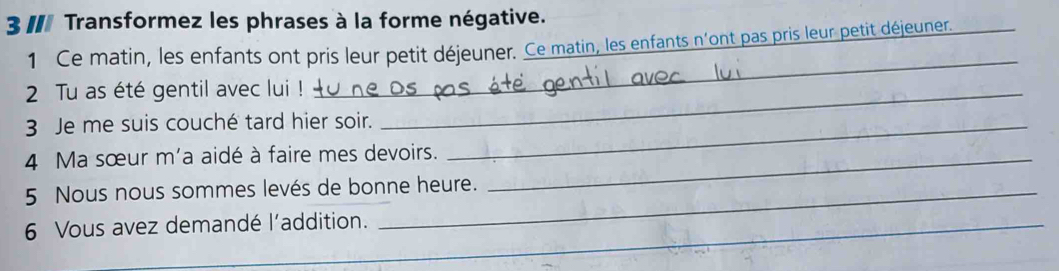 3 /// Transformez les phrases à la forme négative.
1 Ce matin, les enfants ont pris leur petit déjeuner. Ce matin, les enfants n'ont pas pris leur petit déjeuner.
2 Tu as été gentil avec lui ! tu ne as pas été gentil avec lui
3 Je me suis couché tard hier soir.
4 Ma sœur m'a aidé à faire mes devoirs.
5 Nous nous sommes levés de bonne heure.
6 Vous avez demandé l'addition.